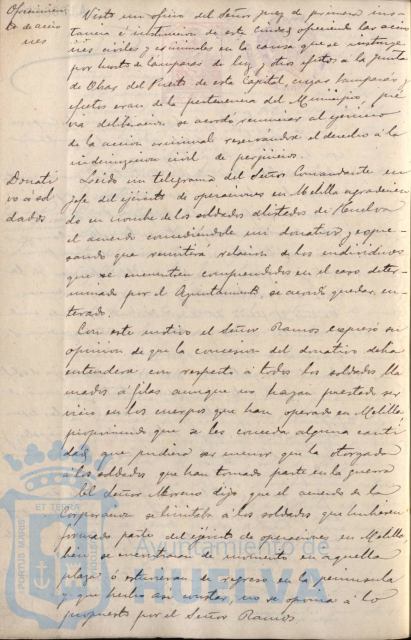 Ofrecimien
to de accio
nes
Visto un oficio del Señor Juez de primera ins-
tancia é instruccion de esta ciudad ofreciendo las accio
nes civiles y criminales en la causa que se instruye
por hurto de lamparas de luz y otros efectos a la Junta
de Obras del Puerto de esta Capital, cuyas lamparas y
efectos eran de la pertenencia del Municipio, pre
via deliberacion se acordó renunciar al ejercicio
de la accion criminal reservándose el derecho a la
indemnizacion civil de perjuicios.
Donati
vo a sol
dados
Leido un telegrama del Señor Comandante en
Jefe del ejército de operaciones en Melilla agradecien
do en nombre de los soldados alistados de Huelva
el acuerdo concediéndole un donativo y expre-
sando que remitirá relacion de los individuos
que se encuentren comprendidos en el caso deter-
minado por el Ayuntamiento, se acordó quedar en-
terado.
Con este motivo el Señor Ramos expresó su
opinion de que la concesion del donativo debia
entenderse con respecto á todos los soldados lla
mados á filas aunque no hayan prestado ser
vicio en los cuerpos que han operado en Melilla
proponiendo que se les conceda alguna canti
dad que pudiera ser menor que la otorgada
á los soldados que han tomado parte en la guerra
El Señor Moreno dijo que el acuerdo de la
Corporacion se limitaba á los soldados que hubieren
formado parte del ejército de operaciones en Melilla
bien se encuentren de momento en aquella
plaza ó estuvieran de regreso en la peninsula
y que hecho así constar, no se oponia á lo
propuesto por el Señor Ramos.
ET TERRA
PORTUS MARIS
CUSTODIA
Ayuntamiento de
HUELVA